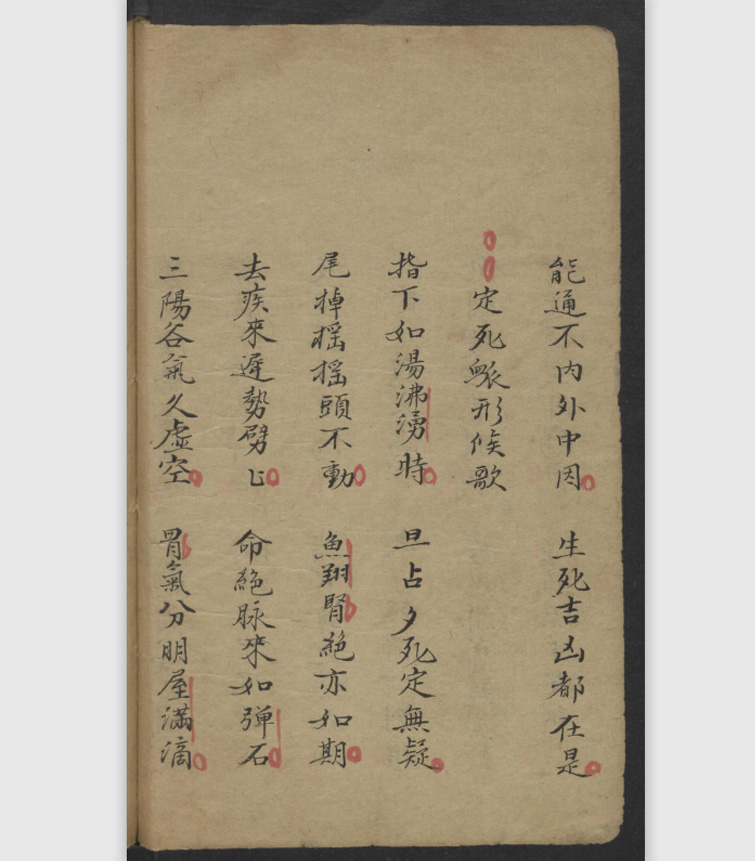 能通不内外中因 生死吉凶都在是
定死脈形候歌
指下如湯沸湧時 旦占夕死定無疑
尾掉揺揺頭不動 魚翔腎絕亦如期
去疾來遲勢劈 命絕脉來如弹石
三陽谷氣久虛空 胃氣分明屋满滴